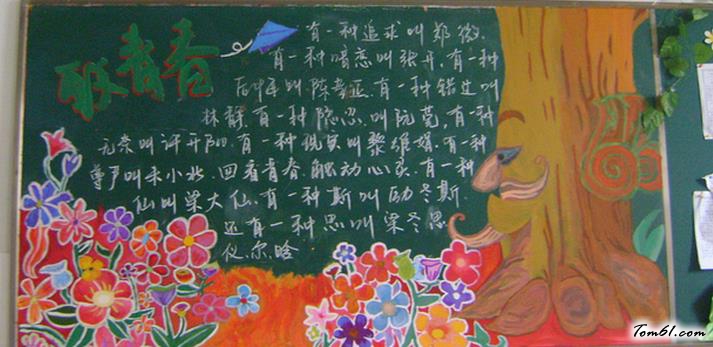 致青春
有一种追求叫郑微.
有一种暗恋叫张开,有一种
后悔叫陈孝正,有一种错过叫
林静,有一种隐忍叫阮莞,有一种
无奈叫许开阳,有一种现实叫黎维娟,有一种
尊严叫朱小北.回看青春,触动心灵.有一种
仙叫梁大仙,有一种斯叫劢冬斯.
还有一种思叫梁冬思
Tom61.com